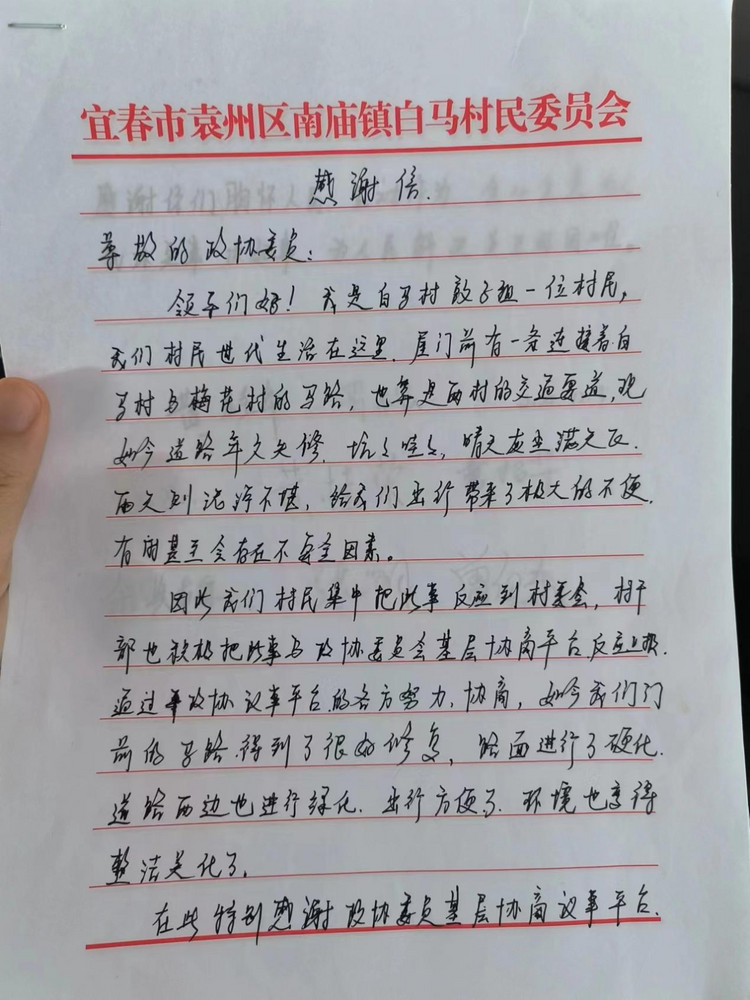 宜春市袁州区南庙镇白马村民委员会
感谢信.
尊敬的政协委员:
领导们好!我是白马村敦子组一位村民,
我们村民世代生活在这里.屋门前有一条连接着白
马村与梅花村的马路,也算是两村的交通要道,现
如今道路年久失修.坑坑哇哇,晴天灰尘满天飞.
雨天则泥泞不堪,给我们出行带来了极大的不便.
有时甚至会存在不安全因素。
因此我们村民集中把此事反应到村委会,村干
部也积极把此事与政协委员会基层协商平台反应上报.
通过政协议事平台的各方努力、协商,如今我们门
前的马路.得到了很好修复,路面进行了硬化.
道路两边也进行绿化.出行方便了.环境也变得
整洁美化了.
在此特别感谢政协委员基层协商议事平台.